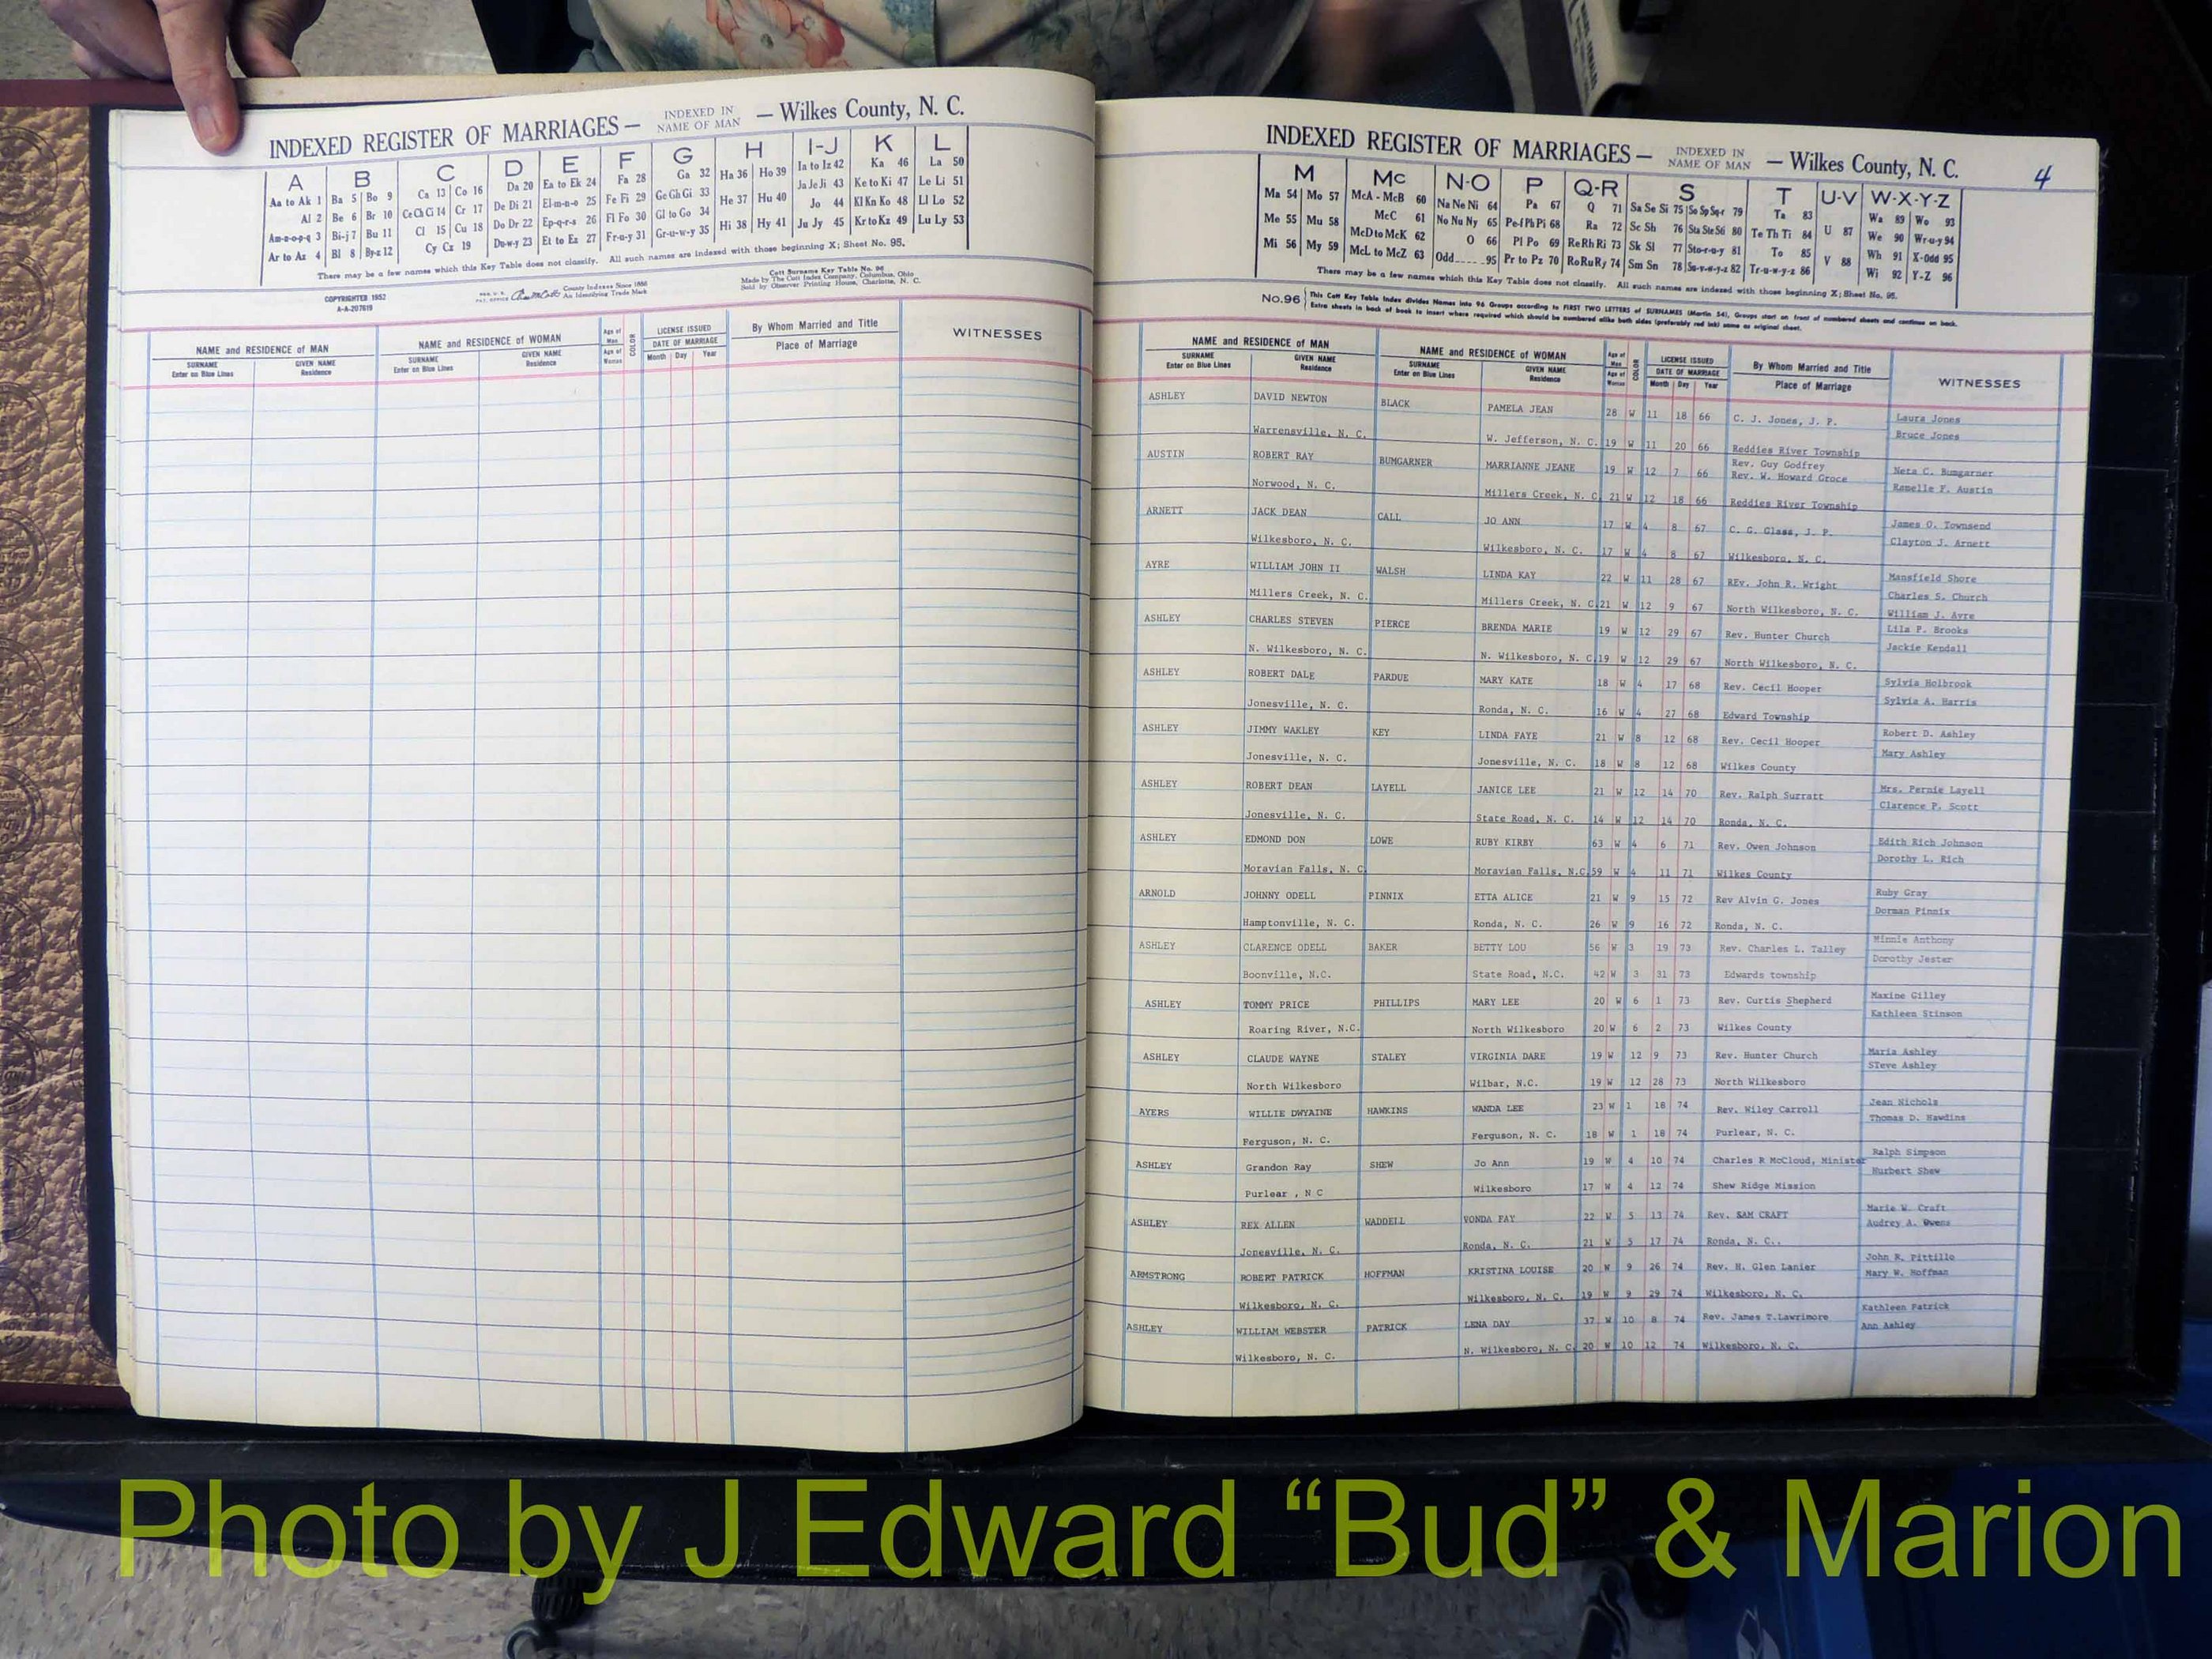 INDEXED REGISTER OF MARRIAGES — INDEXED IN NAME OF MAN — Wilkes County, N. C.
A B C D E F G H I-J K L
Aa to Ak 1 Ba 5 Bo 9 Ca 13 Co 16 Da 20 Ea to Ek 24 Fa 28 Ga 32 Ha 36 Ho 39 Ia to Iz 42 Ka 46 La 50
Al 2 Be 6 Br 10 Ce Ch Ci 14 Cr 17 De Di 21 El-m-n-o 25 Fe Fi 29 Ge Gh Gi 33 He 37 Hu 40 Ja Je Ji 43 Ke to Ki 47 Le Li 51
Am-n-o-p-q 3 Bi-j 7 Bu 11 Cl 15 Cu 18 Do Dr 22 Ep-q-r-s 26 Fl Fo 30 Gl to Go 34 Hi 38 Hy 41 Jo 44 Kl Kn Ko 48 Ll Lo 52
Ar to Az 4 Bl 8 By-z 12 Cy Cz 19 Du-w-y 23 Et to Ez 27 Fr-u-y 31 Gr-u-w-y 35 Ju Jy 45 Kr to Kz 49 Lu Ly 53
There may be a few names which this Key Table does not classify. All such names are indexed with those beginning X; Sheet No. 95.
COPYRIGHTED 1952
A-A-207619
County Indexes Since 1888
An Identifying Trade Mark
Cott Surname Key Table No. 96
Made by The Cott Index Company, Columbus, Ohio
Sold by Observer Printing House, Charlotte, N. C.
NAME and RESIDENCE of MAN NAME and RESIDENCE of WOMAN Age of Man Age of Woman COLOR LICENSE ISSUED DATE OF MARRIAGE By Whom Married and Title WITNESSES
SURNAME Enter on Blue Lines GIVEN NAME Residence SURNAME Enter on Blue Lines GIVEN NAME Residence Month Day Year Place of Marriage
INDEXED REGISTER OF MARRIAGES — INDEXED IN NAME OF MAN — Wilkes County, N. C. 4
M Mc N-O P Q-R S T U-V W-X-Y-Z
Ma 54 Mo 57 McA - McB 60 Na Ne Ni 64 Pa 67 Q 71 Sa Se Si 75 So Sp Sq-r 79 Ta 83 U 87 Wa 89 Wo 93
Me 55 Mu 58 McC 61 No Nu Ny 65 Pe-f Ph Pi 68 Ra 72 Sc Sh 76 Sta Ste Sti 80 Te Th Ti 84 V 88 We 90 Wr-u-y 94
Mi 56 My 59 McD to McK 62 O 66 Pl Po 69 Re Rh Ri 73 Sk Sl 77 Sto-r-u-y 81 To 85 Wh 91 X-Odd 95
McL to McZ 63 Odd 95 Pr to Pz 70 Ro Ru Ry 74 Sm Sn 78 Su-v-w-y-z 82 Tr-u-w-y-z 86 Wi 92 Y-Z 96
There may be a few names which this Key Table does not classify. All such names are indexed with those beginning X; Sheet No. 95.
No.96 This Cott Key Table Index divides Names into 96 Groups according to FIRST TWO LETTERS of SURNAMES (Martin 54). Groups start on front of numbered sheets and continue on back.
Extra sheets in back of book to insert where required which should be numbered alike both sides (preferably red ink) same as original sheet.
NAME and RESIDENCE of MAN NAME and RESIDENCE of WOMAN Age of Man Age of Woman COLOR LICENSE ISSUED DATE OF MARRIAGE By Whom Married and Title WITNESSES
SURNAME Enter on Blue Lines GIVEN NAME Residence SURNAME Enter on Blue Lines GIVEN NAME Residence Month Day Year Place of Marriage
ASHLEY DAVID NEWTON BLACK PAMELA JEAN 28 W 11 18 66 C. J. Jones, J. P. Laura Jones
Bruce Jones
Warrensville, N. C. W. Jefferson, N. C. 19 W 11 20 66 Reddies River Township
AUSTIN ROBERT RAY BUMGARNER MARRIANNE JEANE 19 W 12 7 66 Rev. Guy Godfrey
Rev. W. Howard Groce Neta C. Bumgarner
Ranelle F. Austin
Norwood, N. C. Millers Creek, N. C. 21 W 12 18 66 Reddies River Township
ARNETT JACK DEAN CALL JO ANN 17 W 4 8 67 C. G. Glass, J. P. James O. Townsend
Clayton J. Arnett
Wilkesboro, N. C. Wilkesboro, N. C. 17 W 4 8 67 Wilkesboro, N. C.
AYRE WILLIAM JOHN II WALSH LINDA KAY 22 W 11 28 67 REv. John R. Wright Mansfield Shore
Charles S. Church
Millers Creek, N. C. Millers Creek, N. C. 21 W 12 9 67 North Wilkesboro, N. C. William J. Ayre
ASHLEY CHARLES STEVEN PIERCE BRENDA MARIE 19 W 12 29 67 Rev. Hunter Church Lila P. Brooks
Jackie Kendall
N. Wilkesboro, N. C. N. Wilkesboro, N. C. 19 W 12 29 67 North Wilkesboro, N. C.
ASHLEY ROBERT DALE PARDUE MARY KATE 18 W 4 17 68 Rev. Cecil Hooper Sylvia Holbrook
Sylvia A. Harris
Jonesville, N. C. Ronda, N. C. 16 W 4 27 68 Edward Township
ASHLEY JIMMY WAKLEY KEY LINDA FAYE 21 W 8 12 68 Rev. Cecil Hooper Robert D. Ashley
Mary Ashley
Jonesville, N. C. Jonesville, N. C. 18 W 8 12 68 Wilkes County
ASHLEY ROBERT DEAN LAYELL JANICE LEE 21 W 12 14 70 Rev. Ralph Surratt Mrs. Pernie Layell
Clarence P. Scott
Jonesville, N. C. State Road, N. C. 14 W 12 14 70 Ronda, N. C.
ASHLEY EDMOND DON LOWE RUBY KIRBY 63 W 4 6 71 Rev. Owen Johnson Edith Rich Johnson
Dorothy L. Rich
Moravian Falls, N. C. Moravian Falls, N.C. 59 W 4 11 71 Wilkes County
ARNOLD JOHNNY ODELL PINNIX ETTA ALICE 21 W 9 15 72 Rev Alvin G. Jones Ruby Gray
Dorman Pinnix
Hamptonville, N. C. Ronda, N. C. 26 W 9 16 72 Ronda, N. C.
ASHLEY CLARENCE ODELL BAKER BETTY LOU 56 W 3 19 73 Rev. Charles L. Talley Winnie Anthony
Dorothy Jester
Boonville, N.C. State Road, N.C. 42 W 3 31 73 Edwards township
ASHLEY TOMMY PRICE PHILLIPS MARY LEE 20 W 6 1 73 Rev. Curtis Shepherd Maxine Gilley
Kathleen Stinson
Roaring River, N.C. North Wilkesboro 20 W 6 2 73 Wilkes County
ASHLEY CLAUDE WAYNE STALEY VIRGINIA DARE 19 W 12 9 73 Rev. Hunter Church Maria Ashley
STeve Ashley
North Wilkesboro Wilbar, N.C. 19 W 12 28 73 North Wilkesboro
AYERS WILLIE DWYAINE HAWKINS WANDA LEE 23 W 1 18 74 Rev. Wiley Carroll Jean Nichols
Thomas D. Hawdins
Ferguson, N. C. Ferguson, N. C. 18 W 1 18 74 Purlear, N. C.
ASHLEY Grandon Ray SHEW Jo Ann 19 W 4 10 74 Charles R McCloud, Minister Ralph Simpson
Hurbert Shew
Purlear , N C Wilkesboro 17 W 4 12 74 Shew Ridge Mission
ASHLEY REX ALLEN WADDELL VONDA FAY 22 W 5 13 74 Rev. SAM CRAFT Marie W. Craft
Audrey A. Owens
Jonesville, N. C. Ronda, N. C. 21 W 5 17 74 Ronda, N. C..
ARMSTRONG ROBERT PATRICK HOFFMAN KRISTINA LOUISE 20 W 9 26 74 Rev. H. Glen Lanier John R. Pittillo
Mary W. Hoffman
Wilkesboro, N. C. Wilkesboro, N. C. 19 W 9 29 74 Wilkesboro, N. C.
ASHLEY WILLIAM WEBSTER PATRICK LENA DAY 37 W 10 8 74 Rev. James T.Lawrimore Kathleen Patrick
Ann Ashley
Wilkesboro, N. C. N. Wilkesboro, N. C. 20 W 10 12 74 Wilkesboro, N. C.
Photo by J Edward “Bud” & Marion